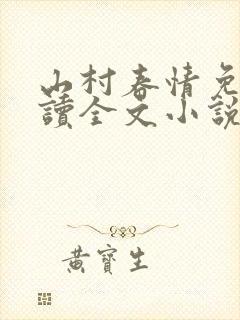 山村春情免
讀全文小說
黃寶生